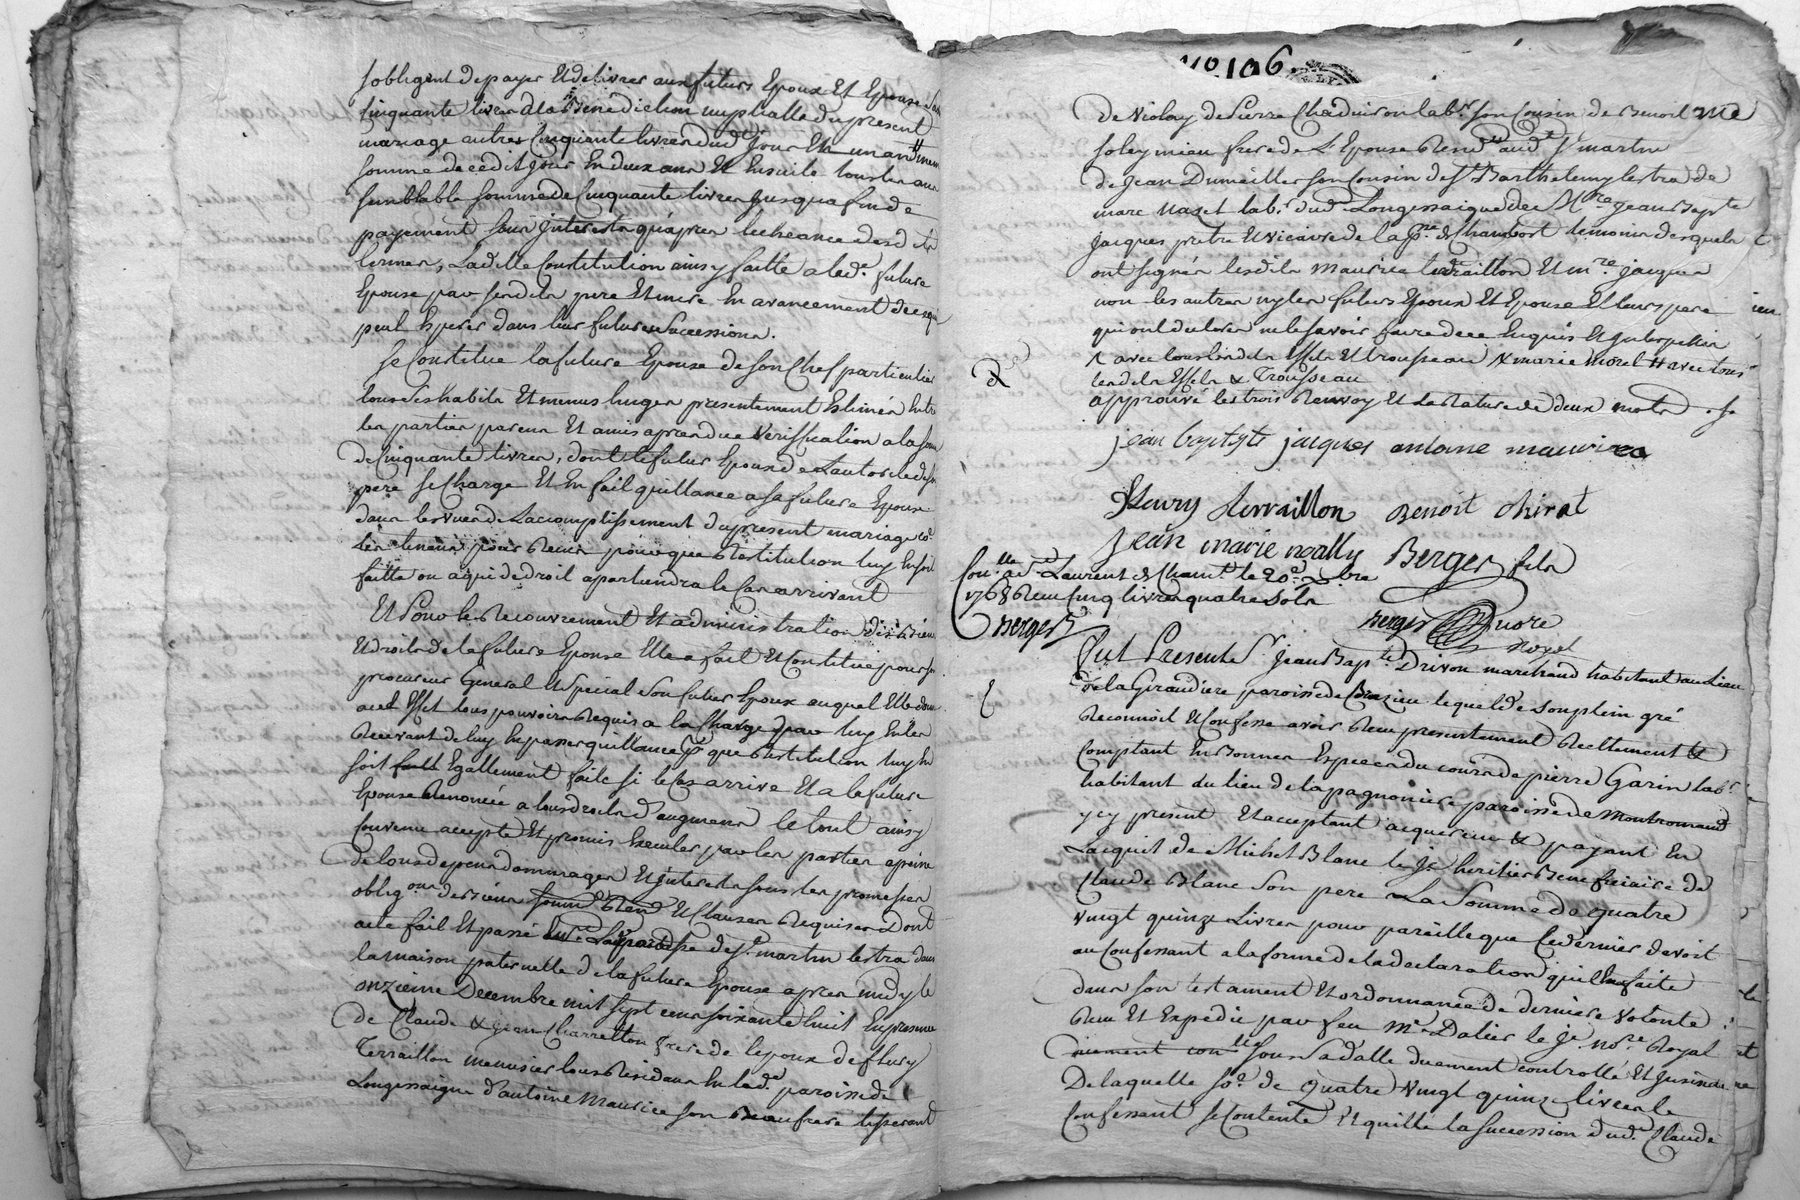 sobligent de payer et delivrer aux futurs epoux et epouse
cinquante livres a la Benediction nuptialle du present
mariage autres cinquante livres dud. jour en un an
somme de cedit jour en deux ans et ensuite tous les ans
semblable somme de cinquante livres jusqua fin de
payement sans interets qu'apres lecheance desd.
termes, Laditte Constitution ainsy faitte a lad.e future
Epouse par sesdits pere et mere en avancement de ce qu
peut esperer dans leur futures successions.
Se Constitue la future Epouse de son Chef particulier
tous ses habits et menus linges presentement estimés entre
les parties parens et amis apres due veriffication a la so
de cinquante livres, dont le futur Epoux de Lautorité de
pere se charge et en fait quittance a sa future Epouse
dans les vues de Laccomplissement du present mariage
les tenant pour Reçus pour que Restitution luy en soit
faitte ou a qui de droit apartiendra le Cas arrivant
Et Pour le Recouvrement et administration des Biens
et droits de la future Epouse Elle a fait et Constitue pour s
procureur General et special son futur Epoux auquel Elle don
a cet effet tous pouvoirs Requis a la charge par luy En les
Recevant de luy en passer quittance pr que Restitution luy en
soit Egallement faite si le cas arrive Et a la future
Epouse Renoncée a tous droits d'augmens le tout ainsy
Convenu accepté et promis executer par les parties a peine
de tous depens dommages et interets sous les promesses
oblig.ons de biens et clauses Requises dont
acte fait et passé paroisse de St. martin lestra dans
la maison paternelle de la future Epouse apres midy le
onzieme Decembre mil sept cens soixante huit En presence
de Claude & jean Charretton frere de lepoux de fleury
Terraillon menuisier tous Residans en lad.e paroisse de
Longessaigne d'antoine Maurice son Beaufrere tisserant
No. 106.
de Violay de Pierre Chaduiron lab.r son Cousin de Benoit
soleymieu frere de L'Epouse Resid.t aud.t St martin
de jean Dumeiller son Cousin de St Barthelemy lestra de
marc Nazet lab.r dud. Longessaigne de Mre jean Bapte
jacques pretre et vicaire de la p.sse de Chambost temoins desquels
ont signés lesdits maurice terraillon et mre. jacques
non les autres ny les futurs Epoux et Epouse et leurs pere
qui ont declarer ne le savoir faire de ce Enquis et interpellés
avec tous lesdits Effets et trousseau & marie morel # avec tous
lesdits Effets & Trousseau
approuvé les trois Renvoy et la Rature de deux mots. /
jean baptiste jacques antoine maurice
fleury terraillon Benoit chirat
jean marie noally Berger fils
Con.lle a St Laurent de Cham.t le 20e Xbre
1768 Reçu Cinq livres quatre sols
Berger
Berger nore
Royal
Fut Present Sr jean Bap.te Drivon marchand habitant au lieu
de la Giraudiere paroisse de Brezieu lequel de son plein gré
Reconnoit et Confesse avoir Reçu presentement Reellement &
Comptant En Bonnes Especes du cours de pierre Garin lab.r
habitant du lieu de la pagnoniere paroisse de Montromand
ycy present et acceptant acquereur & payant En
Lacquit de Michel Blanc le je heritier Beneficiaire de
Claude Blanc son pere La Somme de quatre
vingt quinze Livres pour pareille que Ce dernier devoit
au Confessant a la forme de la declaration qu'il En a faite
dans son testament et ordonnance de derniere volonté
Reçu et Expedié par feu Mr Dalier le je nore Royal
sous sa datte duement controllé et insinue
De laquelle so.e de quatre vingt quinze livres le
Confessant se Contente et quitte la succession dud. Claude